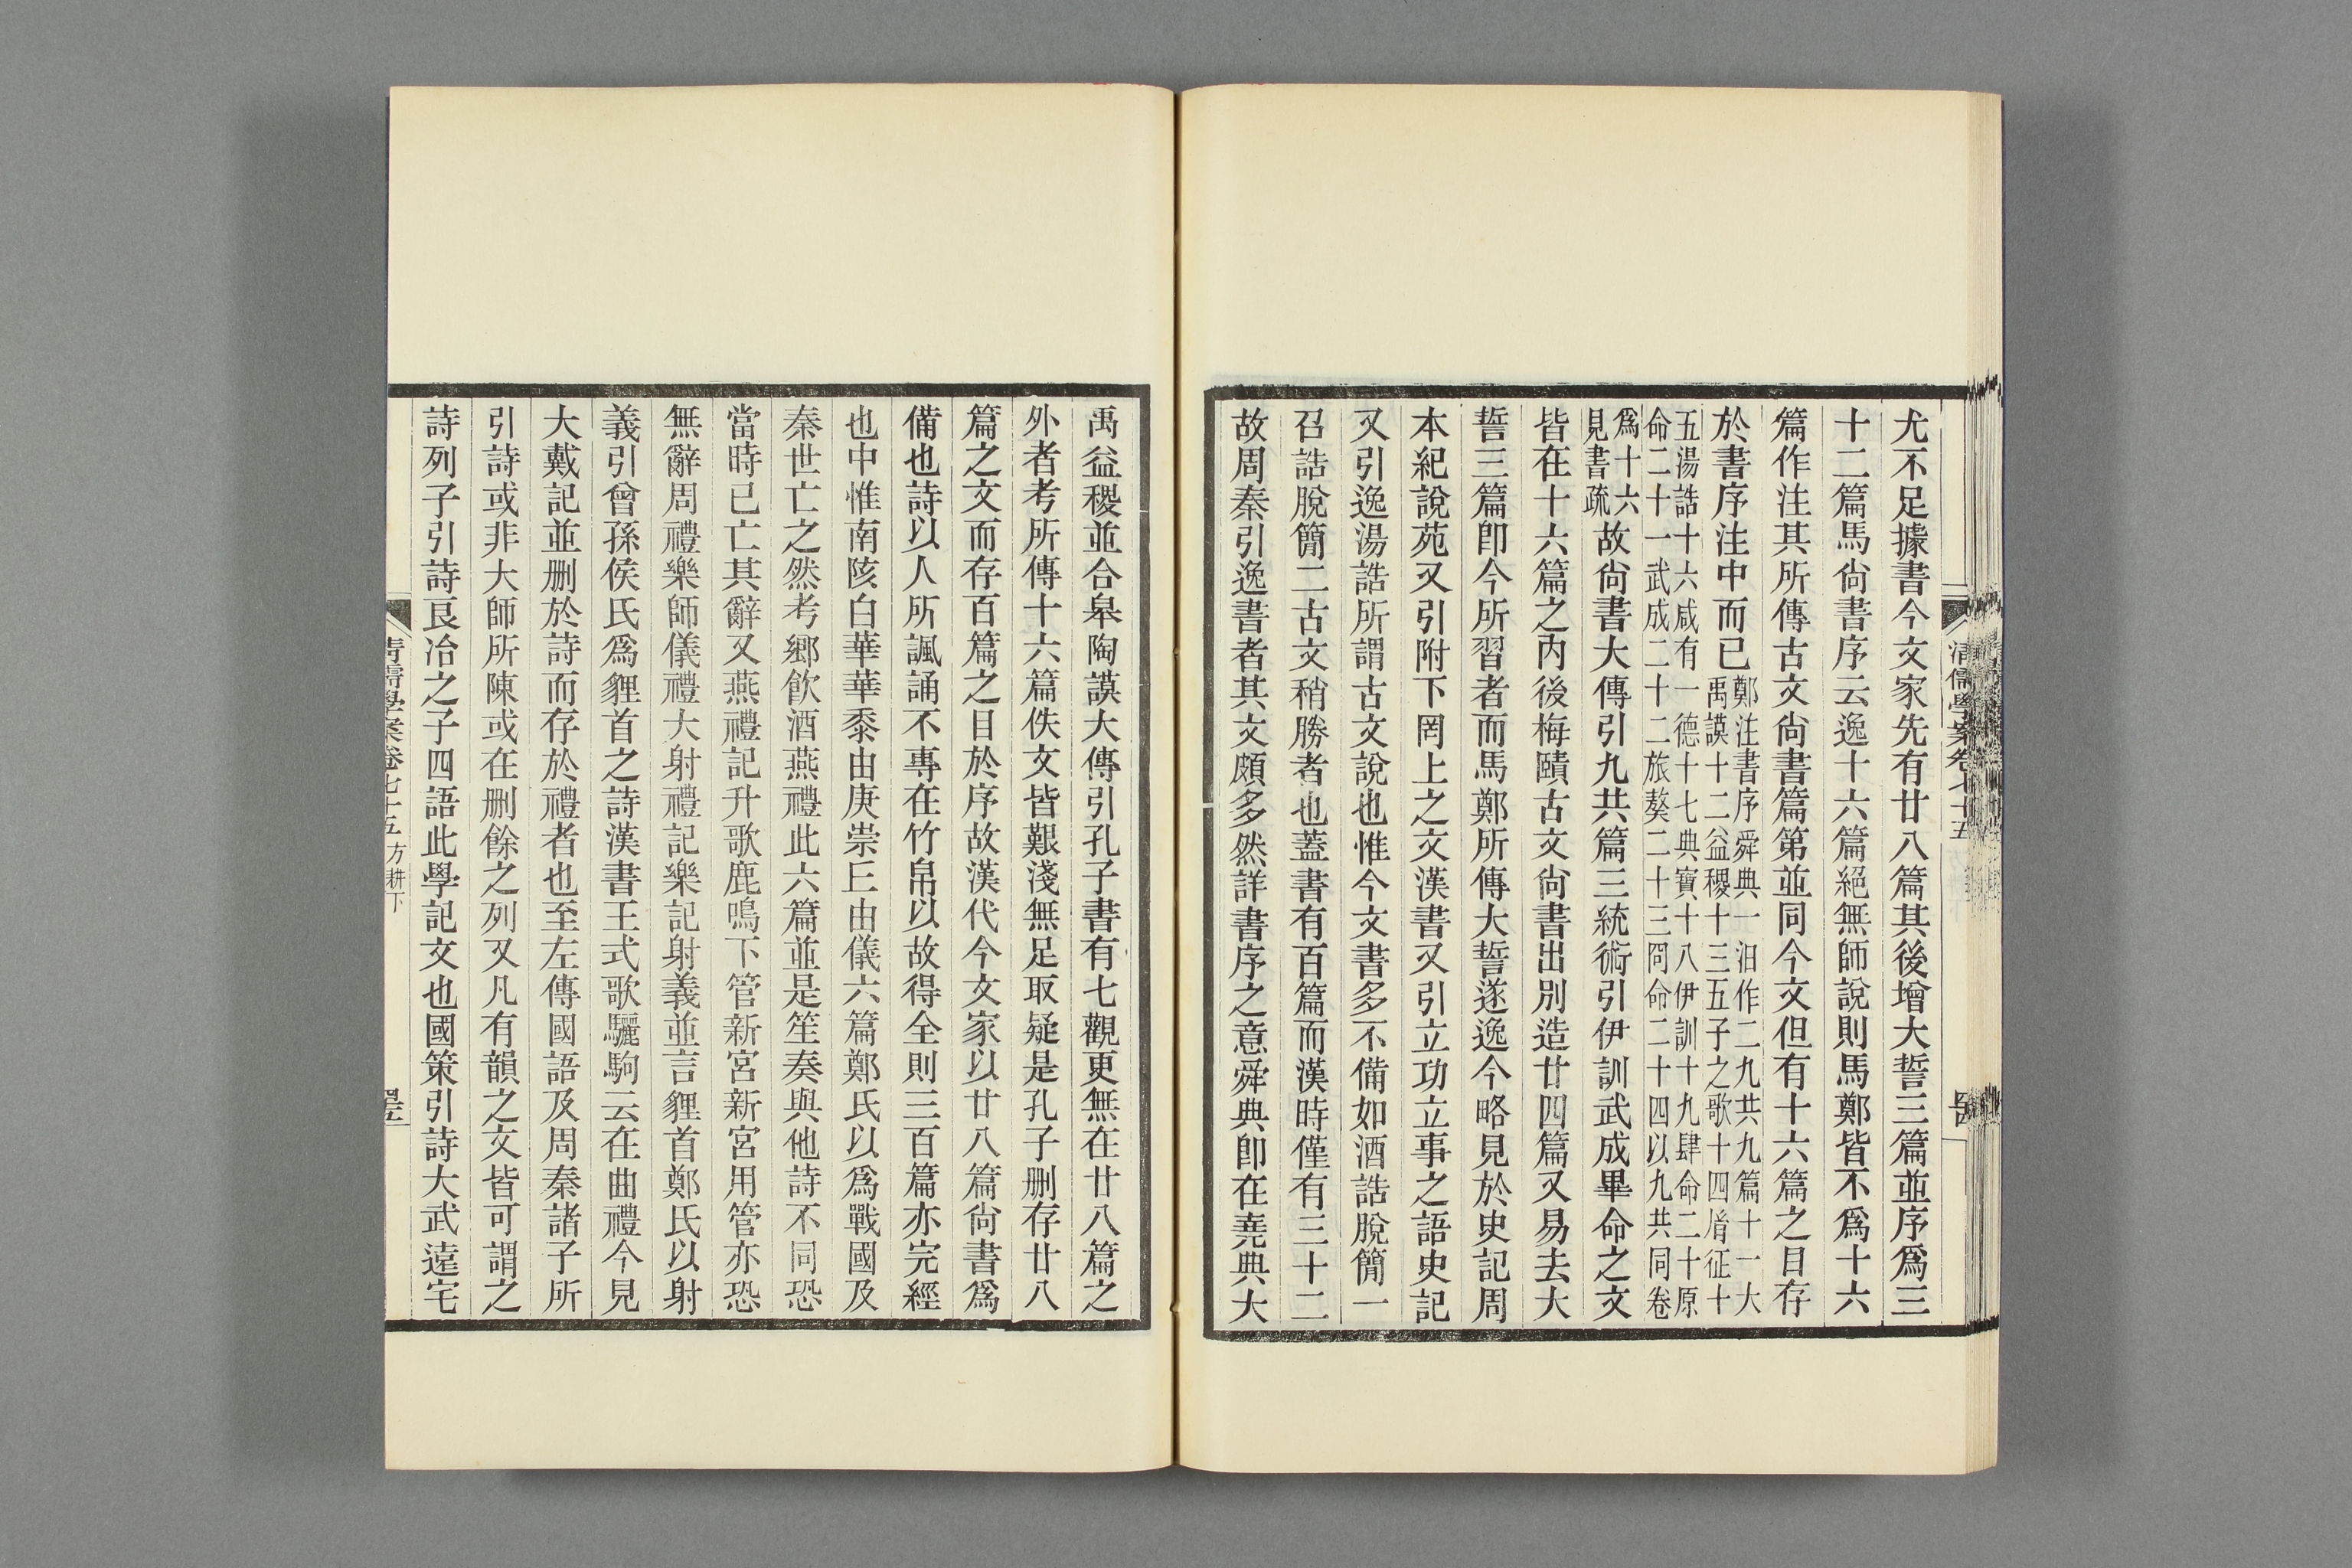 尤不足據書今文家先有廿八篇其後增大誓三篇並序爲三
十二篇馬尙書序云逸十六篇絕無師說則馬鄭皆不爲十六
篇作注其所傳古文尙書篇第並同今文但有十六篇之目存
於書序注中而已鄭注書序舜典一汨作二九共九篇十一大禹謨十二益稷十三五子之歌十四㣧征十
五湯誥十六咸有一德十七典寶十八伊訓十九肆命二十原命二十一武成二十二旅獒二十三冏命二十四以九共同卷
爲十六見書疏故尙書大傳引九共篇三統術引伊訓武成畢命之文
皆在十六篇之內後梅賾古文尙書出別造廿四篇又易去大
誓三篇卽今所習者而馬鄭所傳大誓遂逸今略見於史記周
本紀說苑又引附下罔上之文漢書又引立功立事之語史記
又引逸湯誥所謂古文說也惟今文書多不備如酒誥脫簡一
召誥脫簡二古文稍勝者也蓋書有百篇而漢時僅有三十二
故周秦引逸書者其文頗多然詳書序之意舜典卽在堯典大
清儒學案卷七十五
禹益稷並合皋陶謨大傳引孔子書有七觀更無在廿八篇之
外者考所傳十六篇佚文皆艱淺無足取疑是孔子刪存廿八
篇之文而存百篇之目於序故漢代今文家以廿八篇尙書爲
備也詩以人所諷誦不專在竹帛以故得全則三百篇亦完經
也中惟南陔白華華黍由庚崇丘由儀六篇鄭氏以爲戰國及
秦世亡之然考鄉飮酒燕禮此六篇並是笙奏與他詩不同恐
當時已亡其辭又燕禮記升歌鹿鳴下管新宮新宮用管亦恐
無辭周禮樂師儀禮大射禮記樂記射義並言貍首鄭氏以射
義引曾孫侯氏爲貍首之詩漢書王式歌驪駒云在曲禮今見
大戴記並刪於詩而存於禮者也至左傳國語及周秦諸子所
引詩或非大師所陳或在刪餘之列又凡有韻之文皆可謂之
詩列子引詩良冶之子四語此學記文也國策引詩大武遠宅
清儒學案卷七十五 方耕下